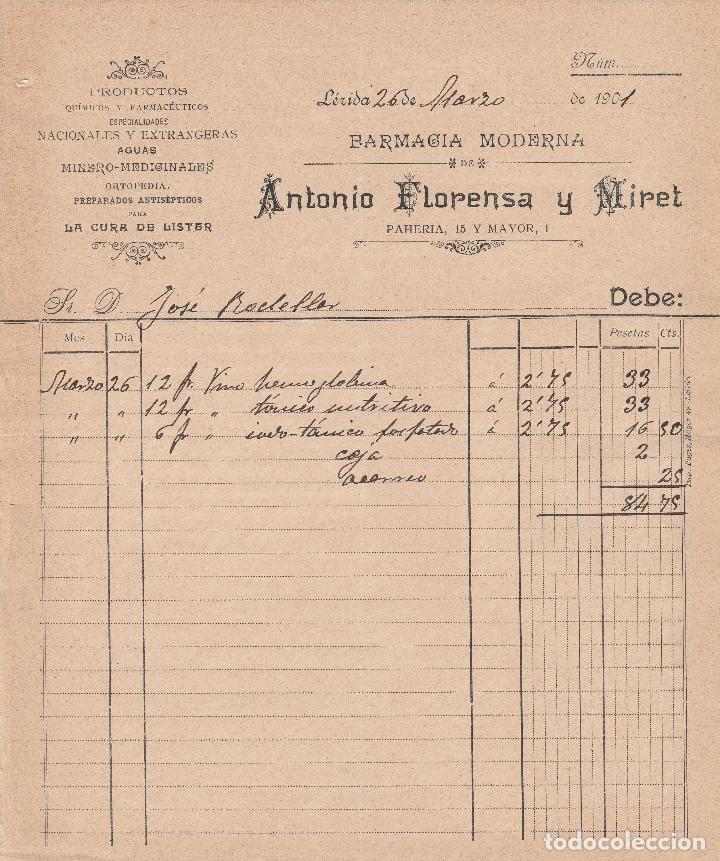 PRODUCTOS
QUÍMICOS Y FARMACÉUTICOS
ESPECIALIDADES
NACIONALES Y EXTRANGERAS
AGUAS
MINERO-MEDICINALES
ORTOPEDIA,
PREPARADOS ANTISÉPTICOS
PARA
LA CURA DE LISTER
Núm.
Lérida 26 de Marzo de 1901.
FARMACIA MODERNA
DE
Antonio Florensa y Miret
PAHERIA, 15 Y MAYOR, 1
Sr. D. José Rodellar Debe:
Mes Dia Pesetas Cts.
Marzo 26 12 fr. Vino hemoglobina á 2'75 33
" " 12 fr " tónico nutritivo á 2'75 33
" " 6 fr " iodo-tánico fosfatado á 2'75 16 50
caja 2
acarreo 25
84 75
todocoleccion